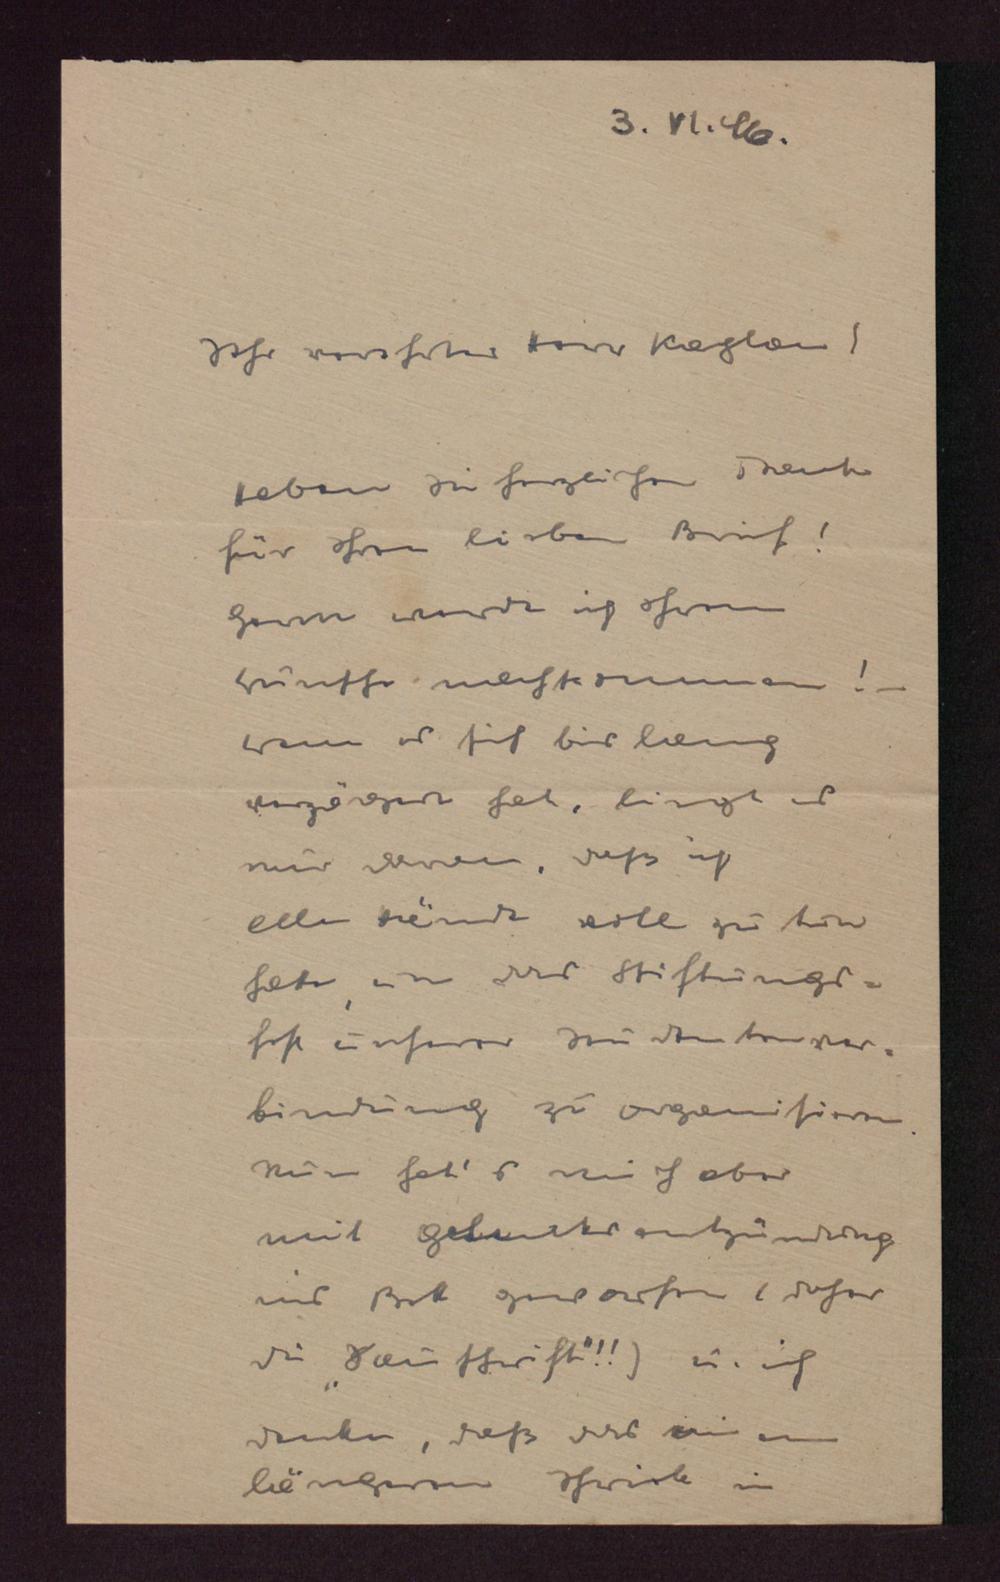 3. VI. 46.
Sehr verehrter Herr Kaplan!
Haben Sie herzlichen Dank
für Ihren lieben Brief!
Gerne werde ich Ihrem
Wunsche nachkommen! –
Wenn es sich bislang
verzögert hat, liegt es
nur daran, daß ich
alle Hände voll zu tun
hatte, um das Stiftungs=
fest unserer Studentenver=
bindung zu organisieren.
Nun hat's mich aber
mit Gelenksentzündung
ins Bett geworfen (daher
die „Sauschrift"!!) u. ich
denke, daß das einen
längeren Strich in